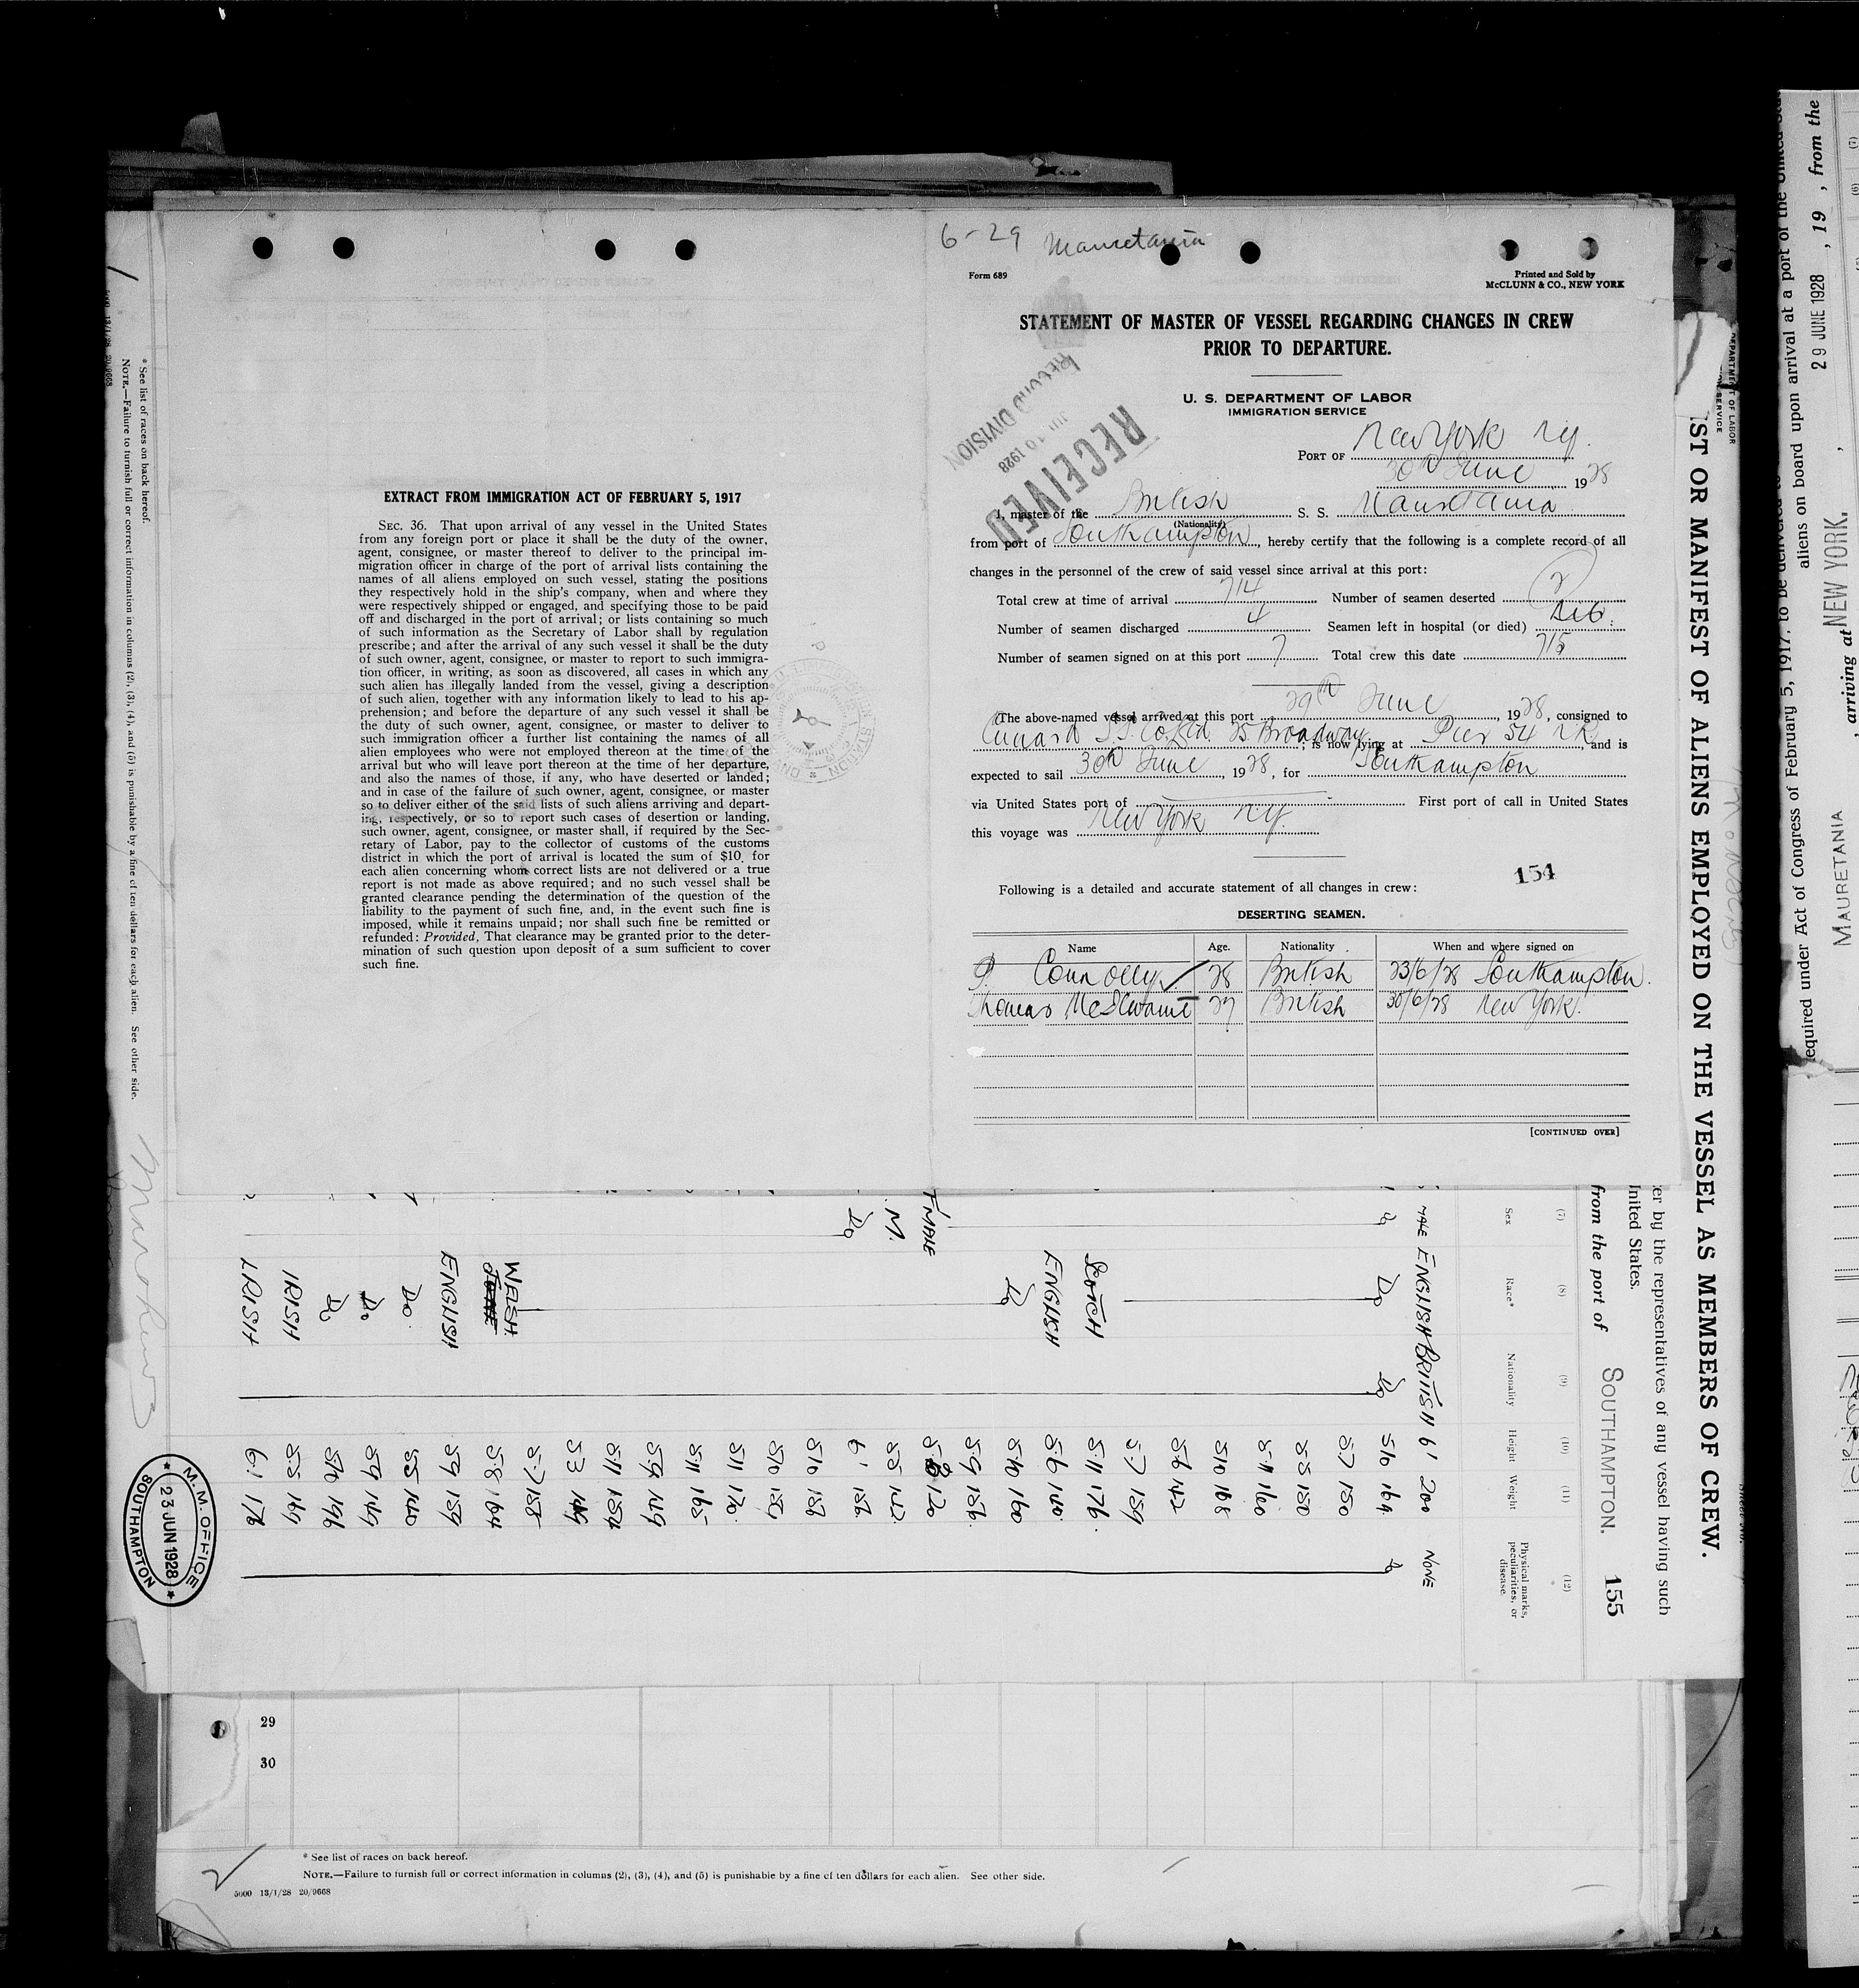 6-29 Mauretania
Form 689
Printed and Sold by
McCLUNN & CO., NEW YORK
STATEMENT OF MASTER OF VESSEL REGARDING CHANGES IN CREW
PRIOR TO DEPARTURE.
U. S. DEPARTMENT OF LABOR
IMMIGRATION SERVICE
RECEIVED
JUL 10 1928
RECORD DIVISION
PORT OF New York N.Y.
30th June, 1928
I, master of the British S. S. Mauretania
(Nationality)
from port of Southampton, hereby certify that the following is a complete record of all
changes in the personnel of the crew of said vessel since arrival at this port:
Total crew at time of arrival 714 Number of seamen deserted 2
Number of seamen discharged 4 Seamen left in hospital (or died)
Number of seamen signed on at this port 7 Total crew this date 715
The above-named vessel arrived at this port 29th June, 1928, consigned to
Cunard S.S. Co. Ltd. 25 Broadway, is now lying at Pier 54 N.R., and is
expected to sail 30th June, 1928, for Southampton
via United States port of First port of call in United States
this voyage was New York N.Y.
154
Following is a detailed and accurate statement of all changes in crew:
DESERTING SEAMEN.
Name Age. Nationality When and where signed on
P. Connolly 28 British 23/6/28 Southampton.
Thomas 27 British 30/6/28 New York.
[CONTINUED OVER]
EXTRACT FROM IMMIGRATION ACT OF FEBRUARY 5, 1917
SEC. 36. That upon arrival of any vessel in the United States
from any foreign port or place it shall be the duty of the owner,
agent, consignee, or master thereof to deliver to the principal im-
migration officer in charge of the port of arrival lists containing the
names of all aliens employed on such vessel, stating the positions
they respectively hold in the ship's company, when and where they
were respectively shipped or engaged, and specifying those to be paid
off and discharged in the port of arrival; or lists containing so much
of such information as the Secretary of Labor shall by regulation
prescribe; and after the arrival of any such vessel it shall be the duty
of such owner, agent, consignee, or master to report to such immigra-
tion officer, in writing, as soon as discovered, all cases in which any
such alien has illegally landed from the vessel, giving a description
of such alien, together with any information likely to lead to his ap-
prehension; and before the departure of any such vessel it shall be
the duty of such owner, agent, consignee, or master to deliver to
such immigration officer a further list containing the names of all
alien employees who were not employed thereon at the time of the
arrival but who will leave port thereon at the time of her departure,
and also the names of those, if any, who have deserted or landed;
and in case of the failure of such owner, agent, consignee, or master
so to deliver either of the said lists of such aliens arriving and depart-
ing, respectively, or so to report such cases of desertion or landing,
such owner, agent, consignee, or master shall, if required by the Sec-
retary of Labor, pay to the collector of customs of the customs
district in which the port of arrival is located the sum of $10 for
each alien concerning whom correct lists are not delivered or a true
report is not made as above required; and no such vessel shall be
granted clearance pending the determination of the question of the
liability to the payment of such fine, and, in the event such fine is
imposed, while it remains unpaid; nor shall such fine be remitted or
refunded: Provided, That clearance may be granted prior to the deter-
mination of such question upon deposit of a sum sufficient to cover
such fine.
ST OR MANIFEST OF ALIENS EMPLOYED ON THE VESSEL AS MEMBERS OF CREW.
er by the representatives of any vessel having such
United States.
from the port of SOUTHAMPTON. 155
(7) (8) (9) (10) (11) (12)
Sex Race* Nationality Height Weight Physical marks, peculiarities, or disease
MALE ENGLISH BRITISH 6 1 200 NONE
Do Do Do 5.10 164 Do
5.7 150
5.5 150
5.11 160
5.10 168
5.6 142
5.7 159
SCOTCH 5.11 176
ENGLISH 5.6 140
Do 5.10 160
5.9 156
FMALE 120
M. 5.5 142
Do 6.1 156
5.10 153
5.10 159
5.11 170
5.11 165
5.9 149
5.11 154
5.3 144
5.7 155
WELSH 5.8 164
ENGLISH 5.9 159
Do. 5.5 140
Do 5.9 149
Do 5.10 146
IRISH 5.5 164
IRISH 6.1 176
M. M. OFFICE
23 JUN 1928
SOUTHAMPTON
* See list of races on back hereof.
NOTE.—Failure to furnish full or correct information in columns (2), (3), (4), and (5) is punishable by a fine of ten dollars for each alien. See other side.
5000 13/1/28 20/9668
29
30
* See list of races on back hereof.
NOTE.—Failure to furnish full or correct information in columns (2), (3), (4), and (5) is punishable by a fine of ten dollars for each alien. See other side.
5000 13/1/28 20/9668
equired under Act of Congress of February 5, 1917, to be delivered to
aliens on board upon arrival at a port of the United
MAURETANIA, arriving at NEW YORK., 29 JUNE 1928, 19 , from the
(6) (7)